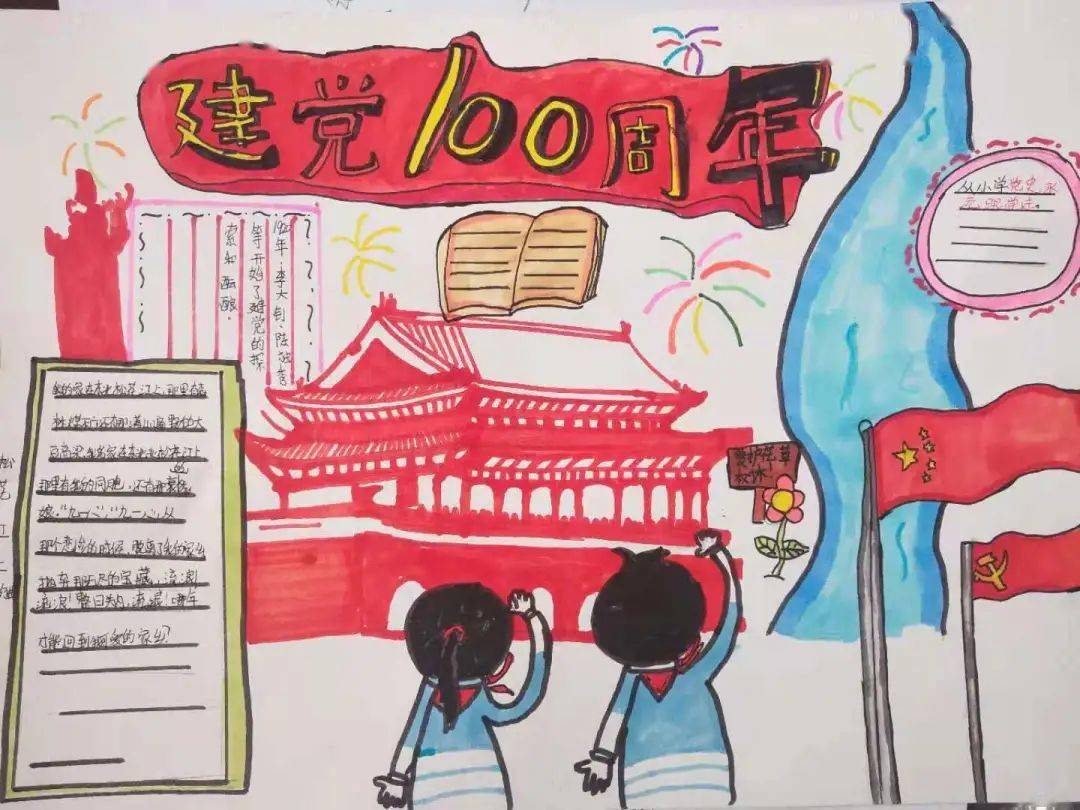 建党100周年
1920年,李大钊、陈独秀
等开始了建党的探
索和酝酿.
从小学党史,永
远跟党走。
爱护花草
我的家在东北松花江上,那里有森
林煤矿还有那满山遍野的大
豆高粱我的家在东北松花江上
那里有我的同胞,还有那衰老
娘,"九一八","九一八",从
那个悲惨的时候,脱离了我的家乡
抛弃那无尽的宝藏,流浪
流浪!整日关内,流浪!哪年
才能回到我可爱的家乡?